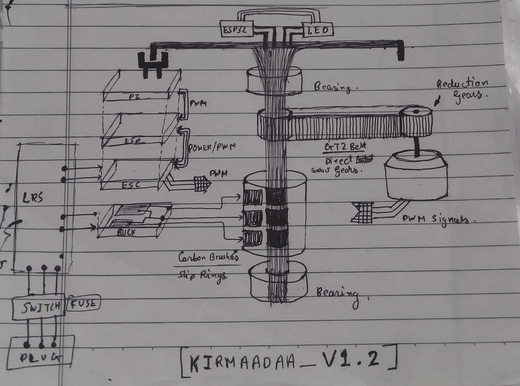 ESP32
LED
Bearing.
Reduction
Gears.
PI
PWM
ESP
POWER/PWM
GT2 Belt
Direct
Gears.
ESC
PWM
LRS
PWM Signals.
BUCK
Carbon Brushes
Slip Rings
Bearing.
SWITCH
FUSE
PLUG
[KIRMAADAA_V1.2]